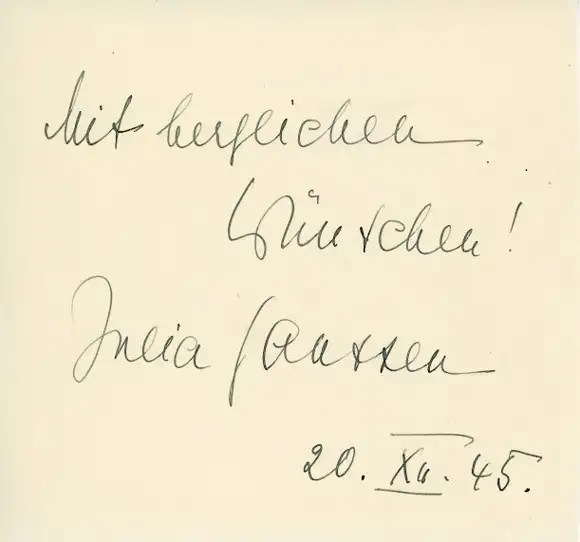 Mit herzlichen
Wünschen!
Julia Janssen
20. XII. 45.